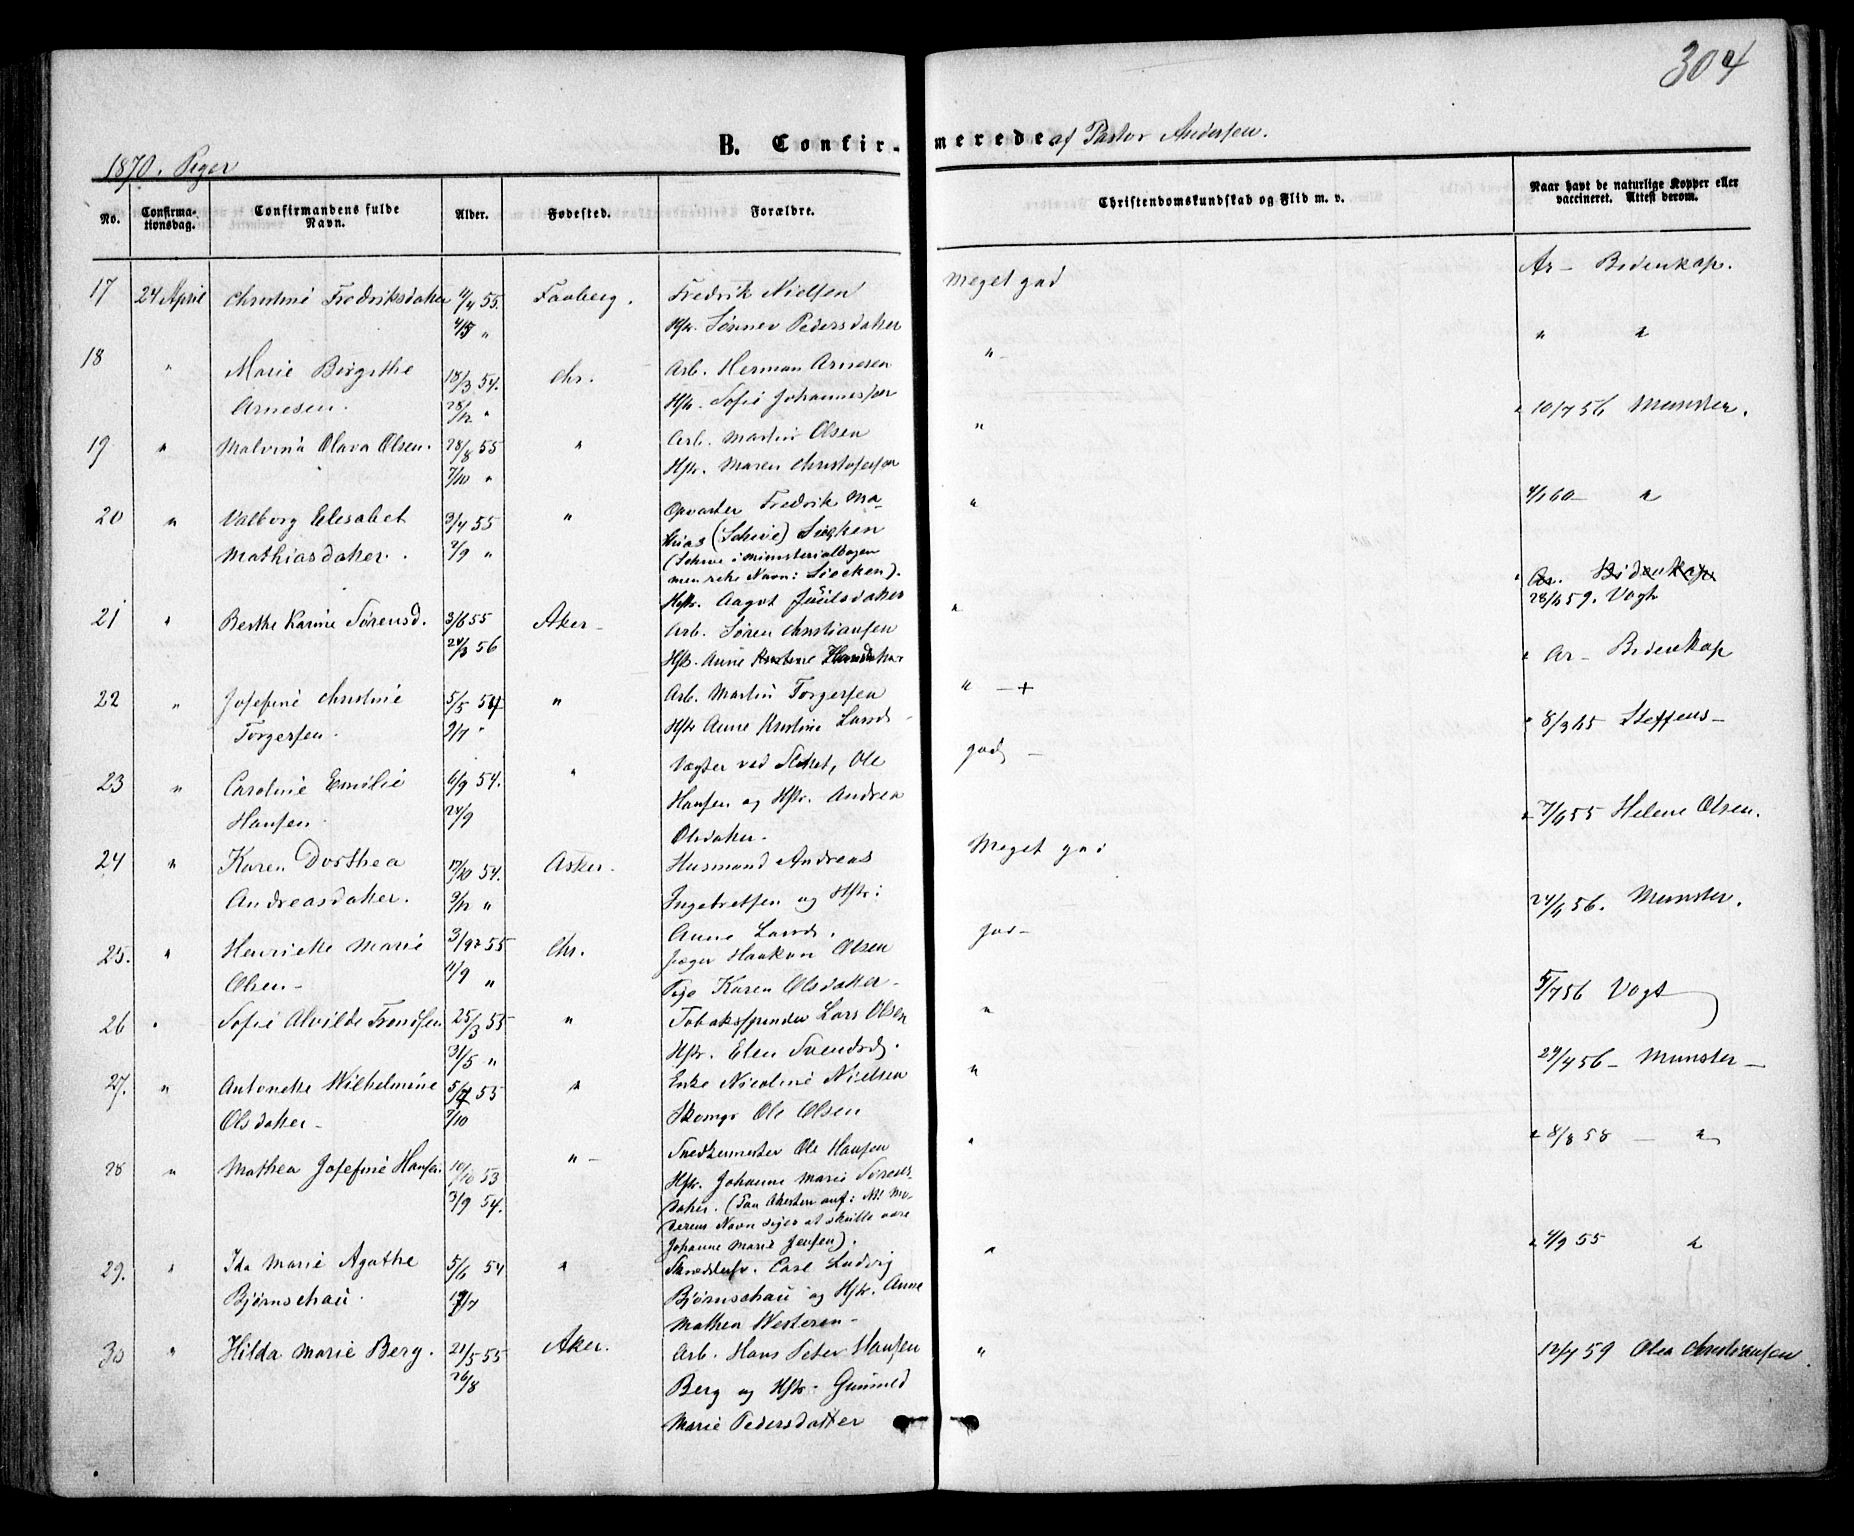 304
1870. Piger
B. Confir-merede af Pastor Andersen.
No. Confirma-tionsdag. Confirmandens fulde Navn. Alder. Fødested. Forældre. Christendomskundskab og Flid m. v. Naar havt de naturlige Kopper eller vaccineret. Attest derom.
17 24 April Christine Fredriksdatter 4/4 55. Faaberg. Fredrik Nielsen Meget god Ar- Bidenkap.
Hstr. Pedersdatter
18 " Marie Birgithe 18/3 54. Chr. Arb. Herman Arnesen " " "
Arnesen. 28/12 " Hstr. Sofie
19 " Malvina Olava Olsen. 28/8 55 " Arb. Martin Olsen " " 10/7 56 Munster.
7/10 " Hstr. Maren
20 " Valborg Elesabet 3/4 55 " Opvarter Fredrik Ma- " "
Mathiasdatter. 2/9 " thias (Schive)
(Schive i ministerialbogen
men rette Navn: ).
Hstr. Aagot
21 " Berthe Karine Sørensd. 3/6 55 Aker- Arb. Søren Christiansen " Ar. Bidenkap
24/3 56 Hstr. Anne 28/6 59. Vogt
22 " Josefine Christine 5/5 54 " Arb. Martin Torgersen " - + " Ar- Bidenkap
Torgersen. 9/7 " Hstr Anne Kristine
23 " Caroline Emilie 6/9 54. " Vægter ved Slottet, Ole god - " Steffens-
Hansen. 24/9 Hansen og Hstr. Andrea
Olsdatter.
24 " Karen Dorthea 17/10 54. Asker. Husmand Andreas Meget god Helene Olsen.
Andreasdatter. 9/12 " Ingebretsen og Hstr:
Anne
25. " Henriette Marie 55 Chr. Jæger Haakon Olsen god- 24/6 56. Munster.
Olsen- 11/9 " Pige Karen Olsdatter-
26 " Sofie Alvilde 25/3 55 " Tobaksspinder Lars Olsen " 5/7 56 Vogt
31/5 " Hstr. Elen Svendsd.
27. " Antonette Wilhelmine 55 " Enke Nicoline Nielsen " 29/4 56- Munster-
Olsdatter- 7/10 Skomgr Ole Olsen
28 " Mathea Josefine Hansen. 10/10 53 "- Snedkermester Ole Hansen " " 8/8 58 - "
3/9 54. Hstr. Johanne Marie Sørens-
datter. (Paa Attesten anf: Mo-
derens Navn siges at skulle være
Johanne Marie Jensen).
29. " Ida Marie Agathe 5/6 54 " Skræddersv. Carl Ludvig " " 4/9 55 "
Bjørnschau. Bjørnschau og Hstr. Anne
Mathea Westeren-
30 " Hilda Marie Berg. 21/5 55 Aker. Arb. Hans Peter Hansen " 12/7 59 Olea Christiansen.
26/8 Berg og Hstr. Gunnild
Marie Pedersdatter